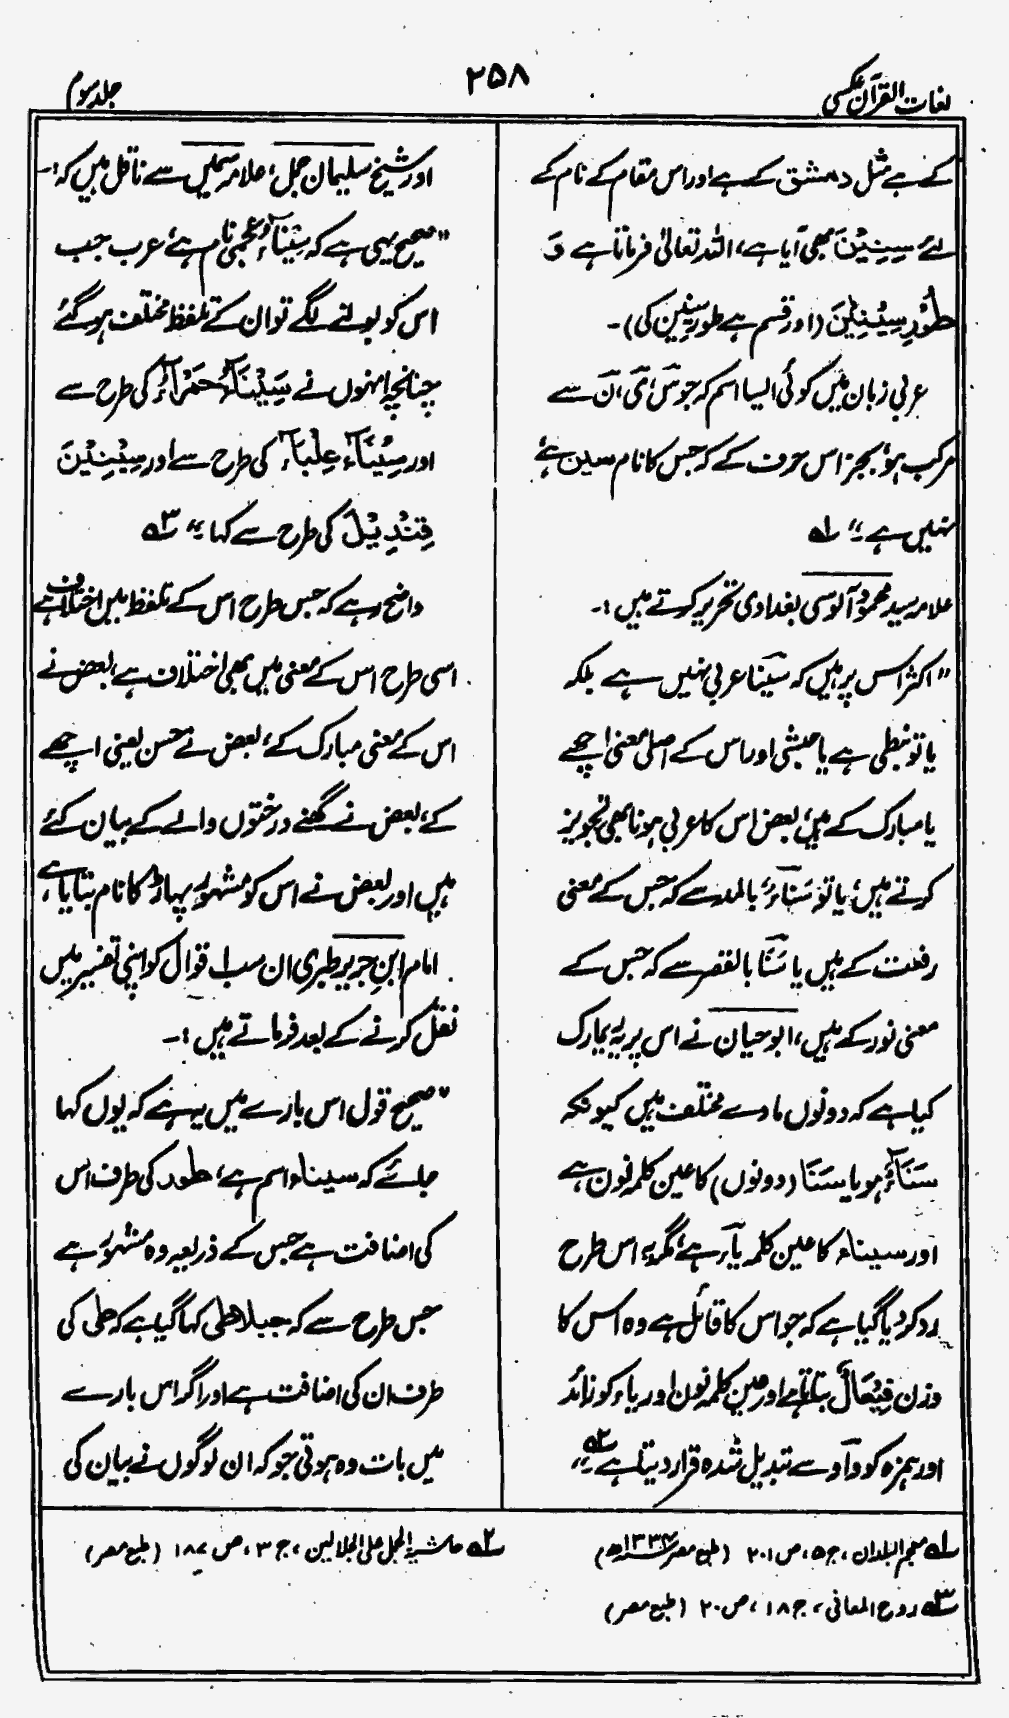 لغات القرآن عکسی
۲۵۸
جلد سوم
کے ہے مثل دمشق کے ہے اور اس مقام کے نام کے
لئے سِیْنِیْنَ بھی آیا ہے، اللہ تعالیٰ فرماتا ہے وَ
طُوْرِ سِیْنِیْنَ (اور قسم ہے طور سِینِین کی)۔
عربی زبان میں کوئی ایسا اسم کہ جو سؔ، یؔ، نؔ سے
مرکب ہو، بجز اس حرف کے کہ جس کا نام سین ہے
نہیں ہے۔" ۱؎
علامہ سید محمود آلوسی بغدادی تحریر کرتے ہیں:۔
"اکثر اس پر ہیں کہ سَینا عربی نہیں ہے بلکہ
یا تو نبطی ہے یا حبشی اور اس کے اصلی معنی اچھے
یا مبارک کے ہیں، بعض اس کا عربی ہونا بھی تجویز
کرتے ہیں، یا تو سَنَاءٌ بالمد سے کہ جس کے معنی
رفعت کے ہیں یا سَنَا بالقصر سے کہ جس کے
معنی نور کے ہیں، ابو حیان نے اس پر یہ یمارک
کیا ہے کہ دونوں مادے مختلف ہیں کیونکہ
سَنَآءٌ ہو یا سَنَا (دونوں) کا عین کلمہ نون ہے
اور سیناء کا عین کلمہ یآء ہے، مگر یہ اس طرح
رد کر دیا گیا ہے کہ جو اس کا قائل ہے وہ اس کا
وزن فِیْعَالٌ بتاتا ہے اور عین کلمہ نون اور یاء کو زائد
اور ہمزہ کو وآو سے تبدیل شدہ قرار دیتا ہے۔" ۲؎
اور شیخ سلیمان جمل، علامہ سمین سے ناقل ہیں کہ:۔
"صحیح یہی ہے کہ سَیْنَآءُ عجمی نام ہے، عرب جب
اس کو بولنے لگے تو ان کے تلفظ مختلف ہو گئے
چنانچہ انہوں نے سَیْنَآءُ حَمْرَآءُ کی طرح سے
اور سِیْنَآءُ عِلْبَآءُ کی طرح سے اور سِیْنِیْنَ
قِنْدِیْلَ کی طرح سے کہا۔" ۳؎
واضح رہے کہ جس طرح اس کے تلفظ میں اختلاف ہے
اسی طرح اس کے معنی میں بھی اختلاف ہے، بعض نے
اس کے معنی مبارک کے، بعض نے حسن یعنی اچھے
کے، بعض نے گھنے درختوں والے کے بیان کئے
ہیں اور بعض نے اس کو مشہور پہاڑ کا نام بتایا ہے،
امام ابن جریر طبری ان سب اقوال کو اپنی تفسیر میں
نقل کرنے کے بعد فرماتے ہیں:۔
"صحیح قول اس بارے میں یہ ہے کہ یوں کہا
جائے کہ سیناء اسم ہے، طور کی طرف اس
کی اضافت ہے جس کے ذریعہ وہ مشہور ہے
جس طرح سے کہ جبلا طی کہا گیا ہے کہ طی کی
طرف ان کی اضافت ہے اور اگر اس بارے
میں بات وہ ہوتی جو کہ ان لوگوں نے بیان کی
۱؎ معجم البلدان، ج ۵، ص ۲۰۱ (طبع مصر ۱۳۲۴ھ)
۲؎ حاشیۃ الجمل علی الجلالین، ج ۳، ص ۱۸۷ (طبع مصر)
۳؎ روح المعانی، ج ۱۸، ص ۲۰ (طبع مصر)